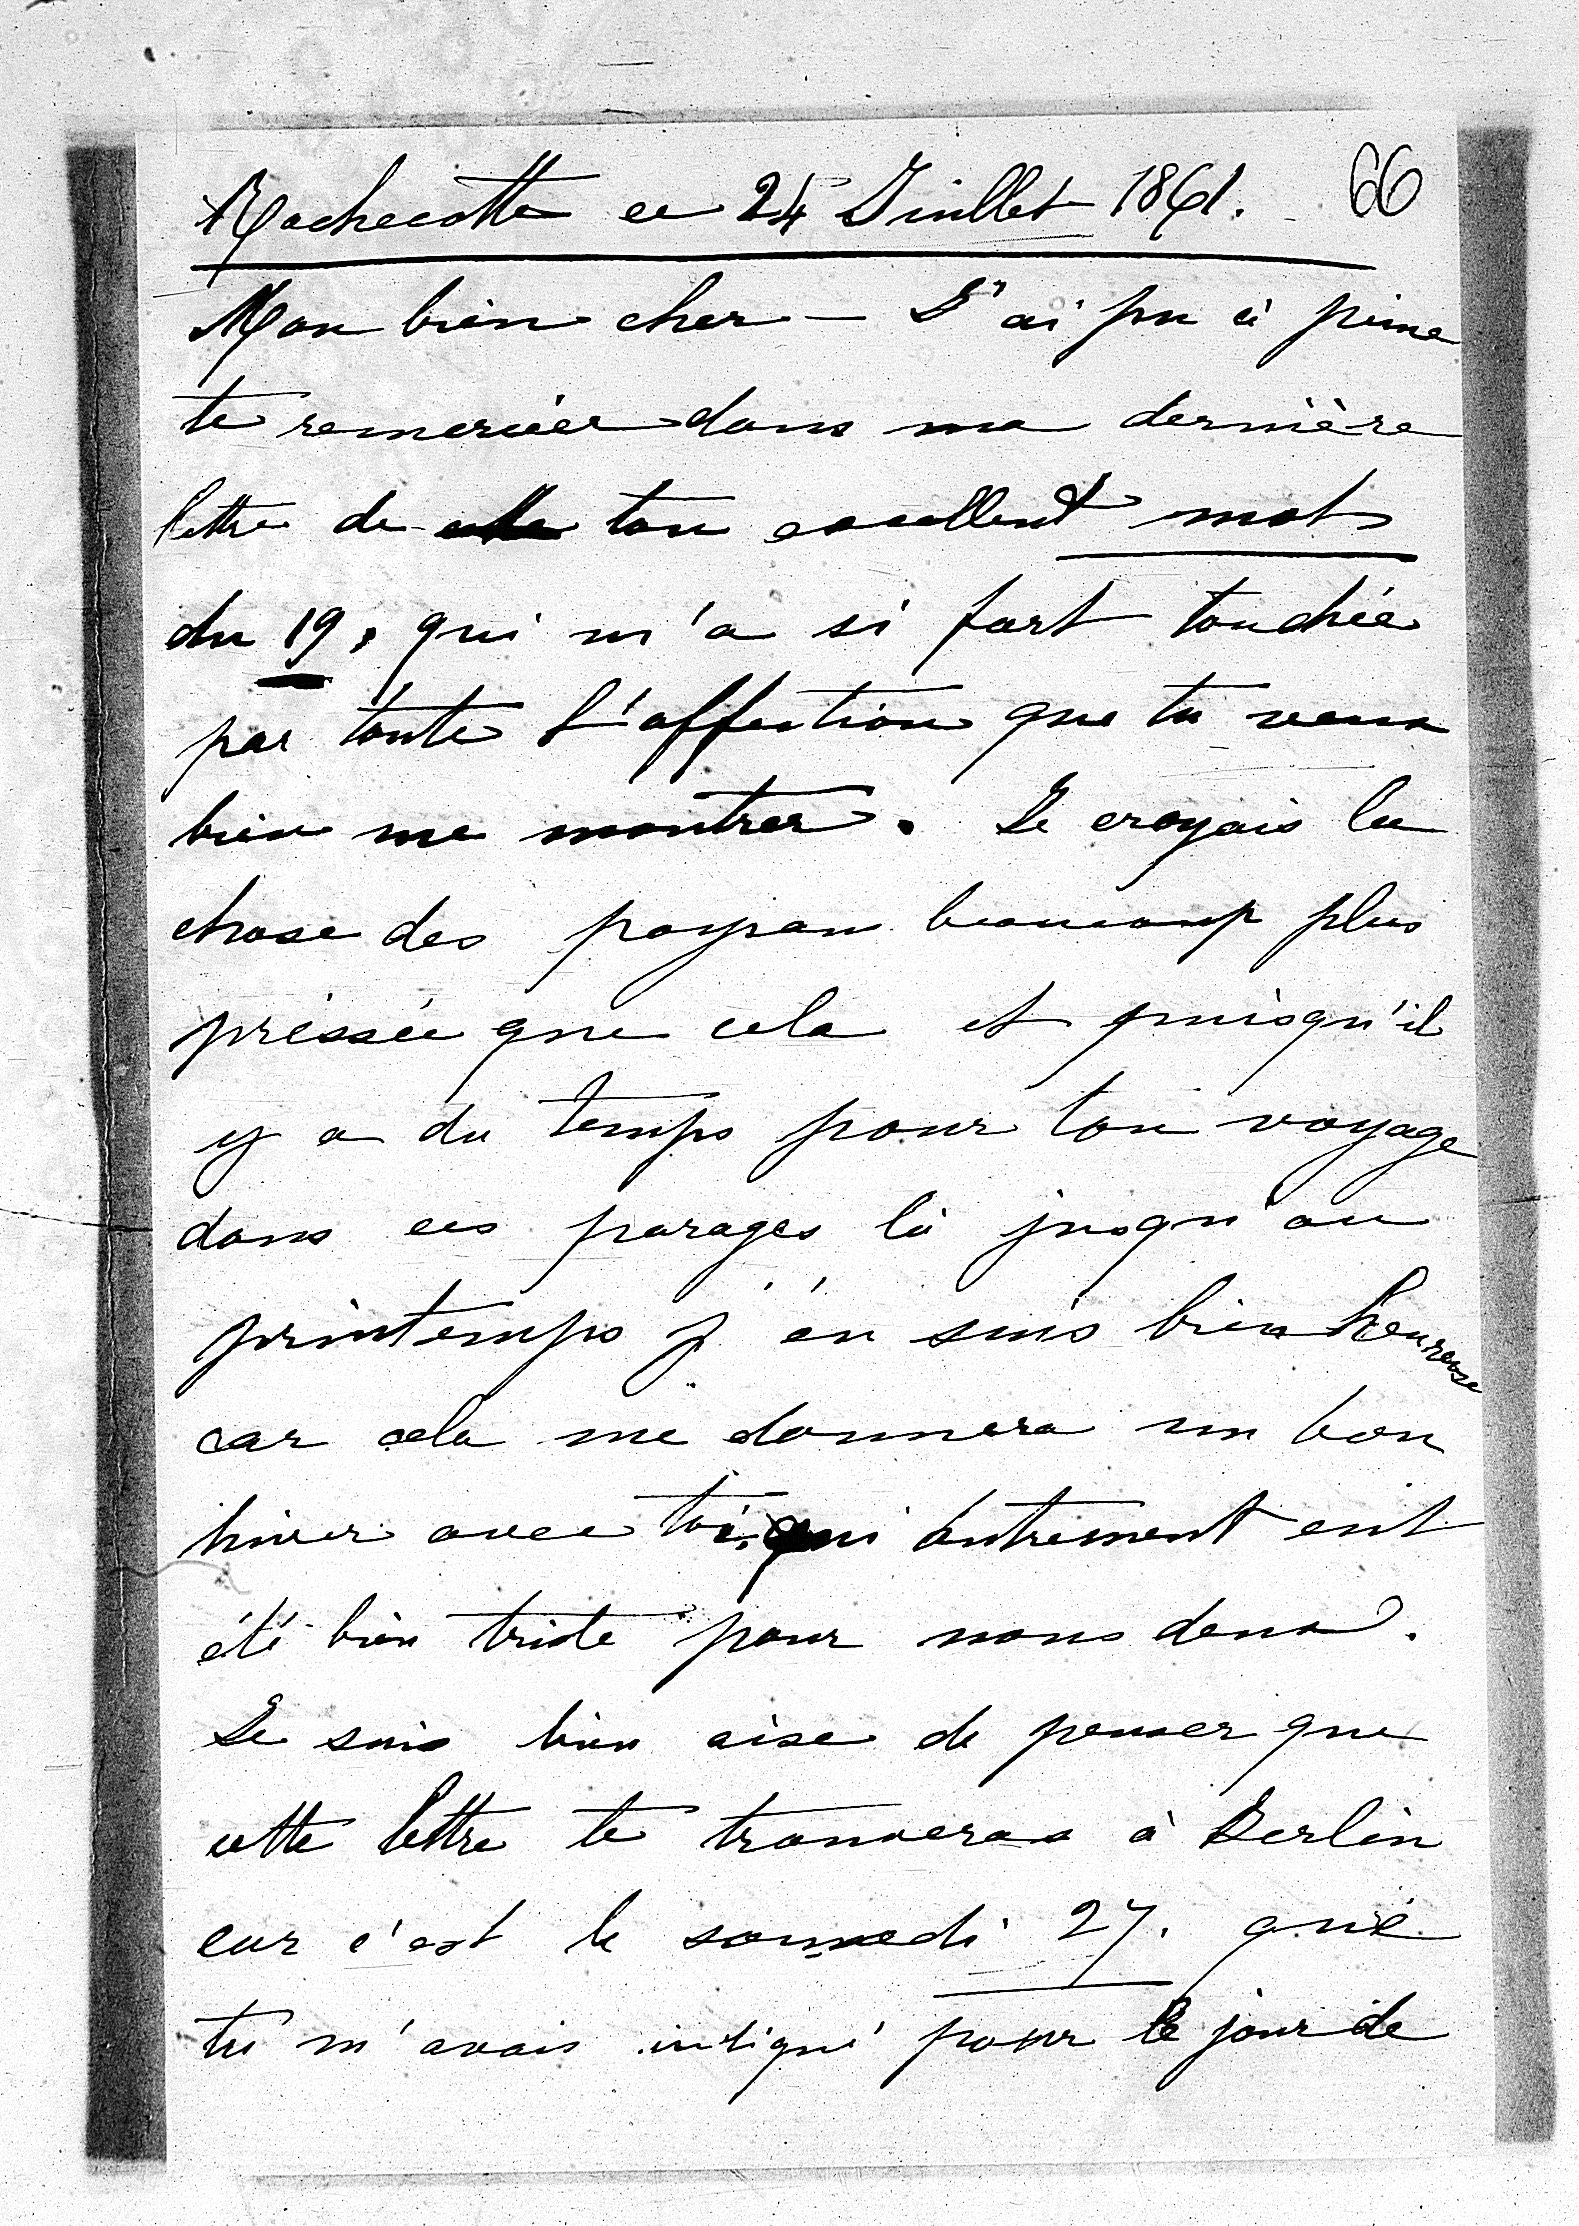 Rochecotte ce 24 Juillet 1861. 66
Mon bien cher — J'ai pu à peine
te remercier dans ma dernière
lettre de ton excellent mot
du 19, qui m'a si fort touchée
par toute l'affection que tu veux
bien me montrer. Je croyais la
chose des beaucoup plus
pressée que cela et puisqu'il
y a du temps pour ton voyage
dans ces parages là jusqu'au
printemps j'en suis bien heureuse
car cela me donnera un bon
hiver avec toi, qui autrement eut
été bien triste pour nous deux.
Je suis bien aise de penser que
cette lettre te trouveras à Berlin
car c'est le samedi 27. que
tu m'avais indiqué pour le jour de